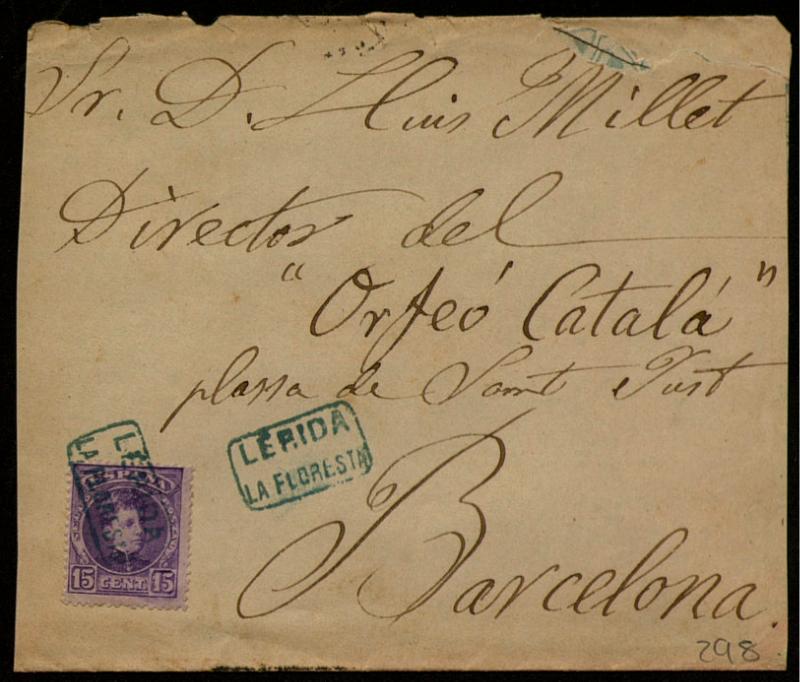 Sr. D. Lluis Millet
Director del
"Orfeó Catalá"
plassa de Sant Just
LÉRIDA
LA FLORESTA
LÉRIDA
LA FLORESTA
ESPAÑA
15 CENT. 15
Barcelona
298